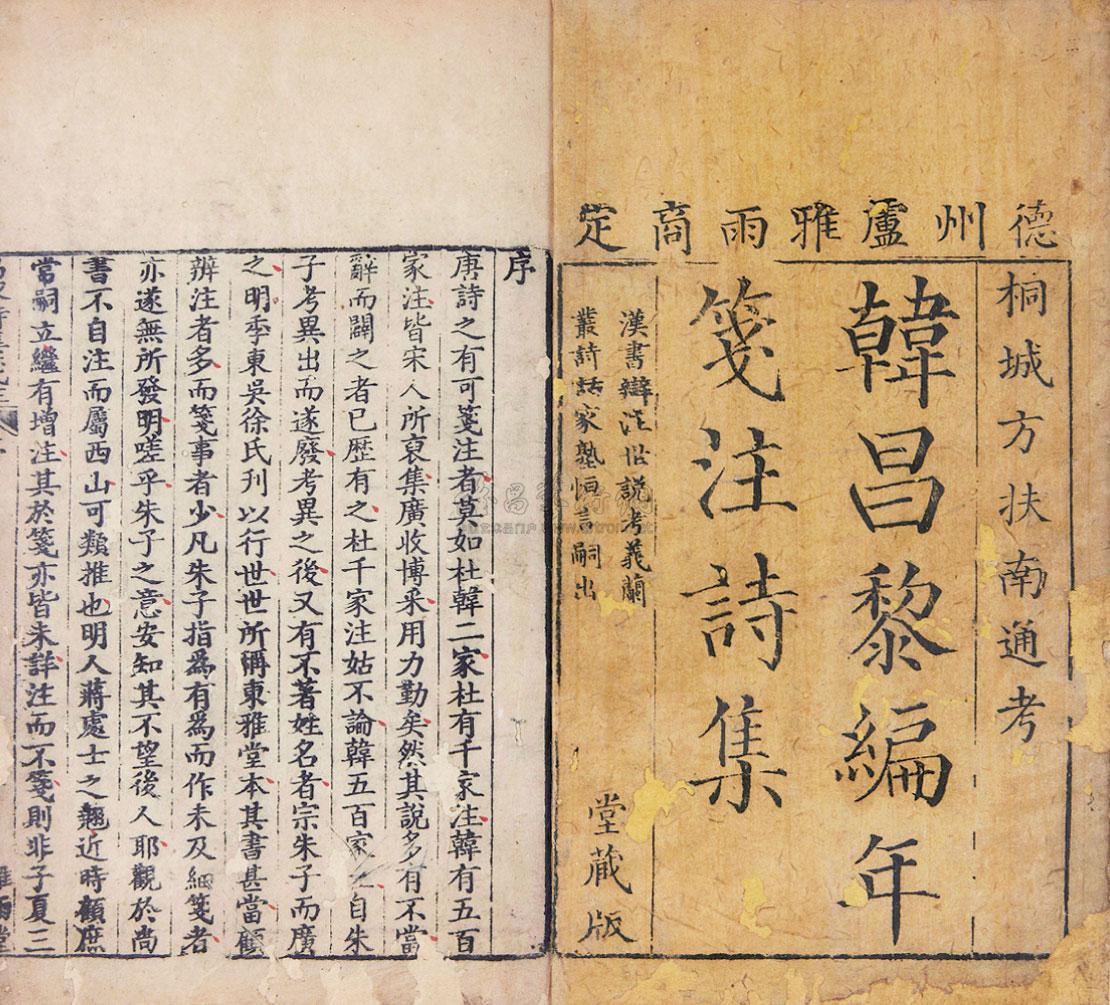 德州盧雅雨商定
桐城方扶南通考
韓昌黎編年
箋注詩集
漢書辯注世說考義蘭
叢詩話家塾恒言嗣出
堂藏版
序
唐詩之有可箋注者莫如杜韓二家杜有千家注韓有五百
家注皆宋人所裒集廣收博采用力勤矣然其說多有不當
辭而闢之者已歷有之杜千家注姑不論韓五百家之自朱
子考異出而遂廢考異之後又有不著姓名者宗朱子而廣
之明季東吳徐氏刊以行世世所稱東雅堂本其書甚當顧
辨注者多而箋事者少凡朱子指為有為而作未及細箋者
亦遂無所發明嗟乎朱子之意安知其不望後人耶觀於尚
書不自注而屬西山可類推也明人蔣處士之翹近時顧庶
常嗣立繼有增注其於箋亦皆未詳注而不箋則非子夏三